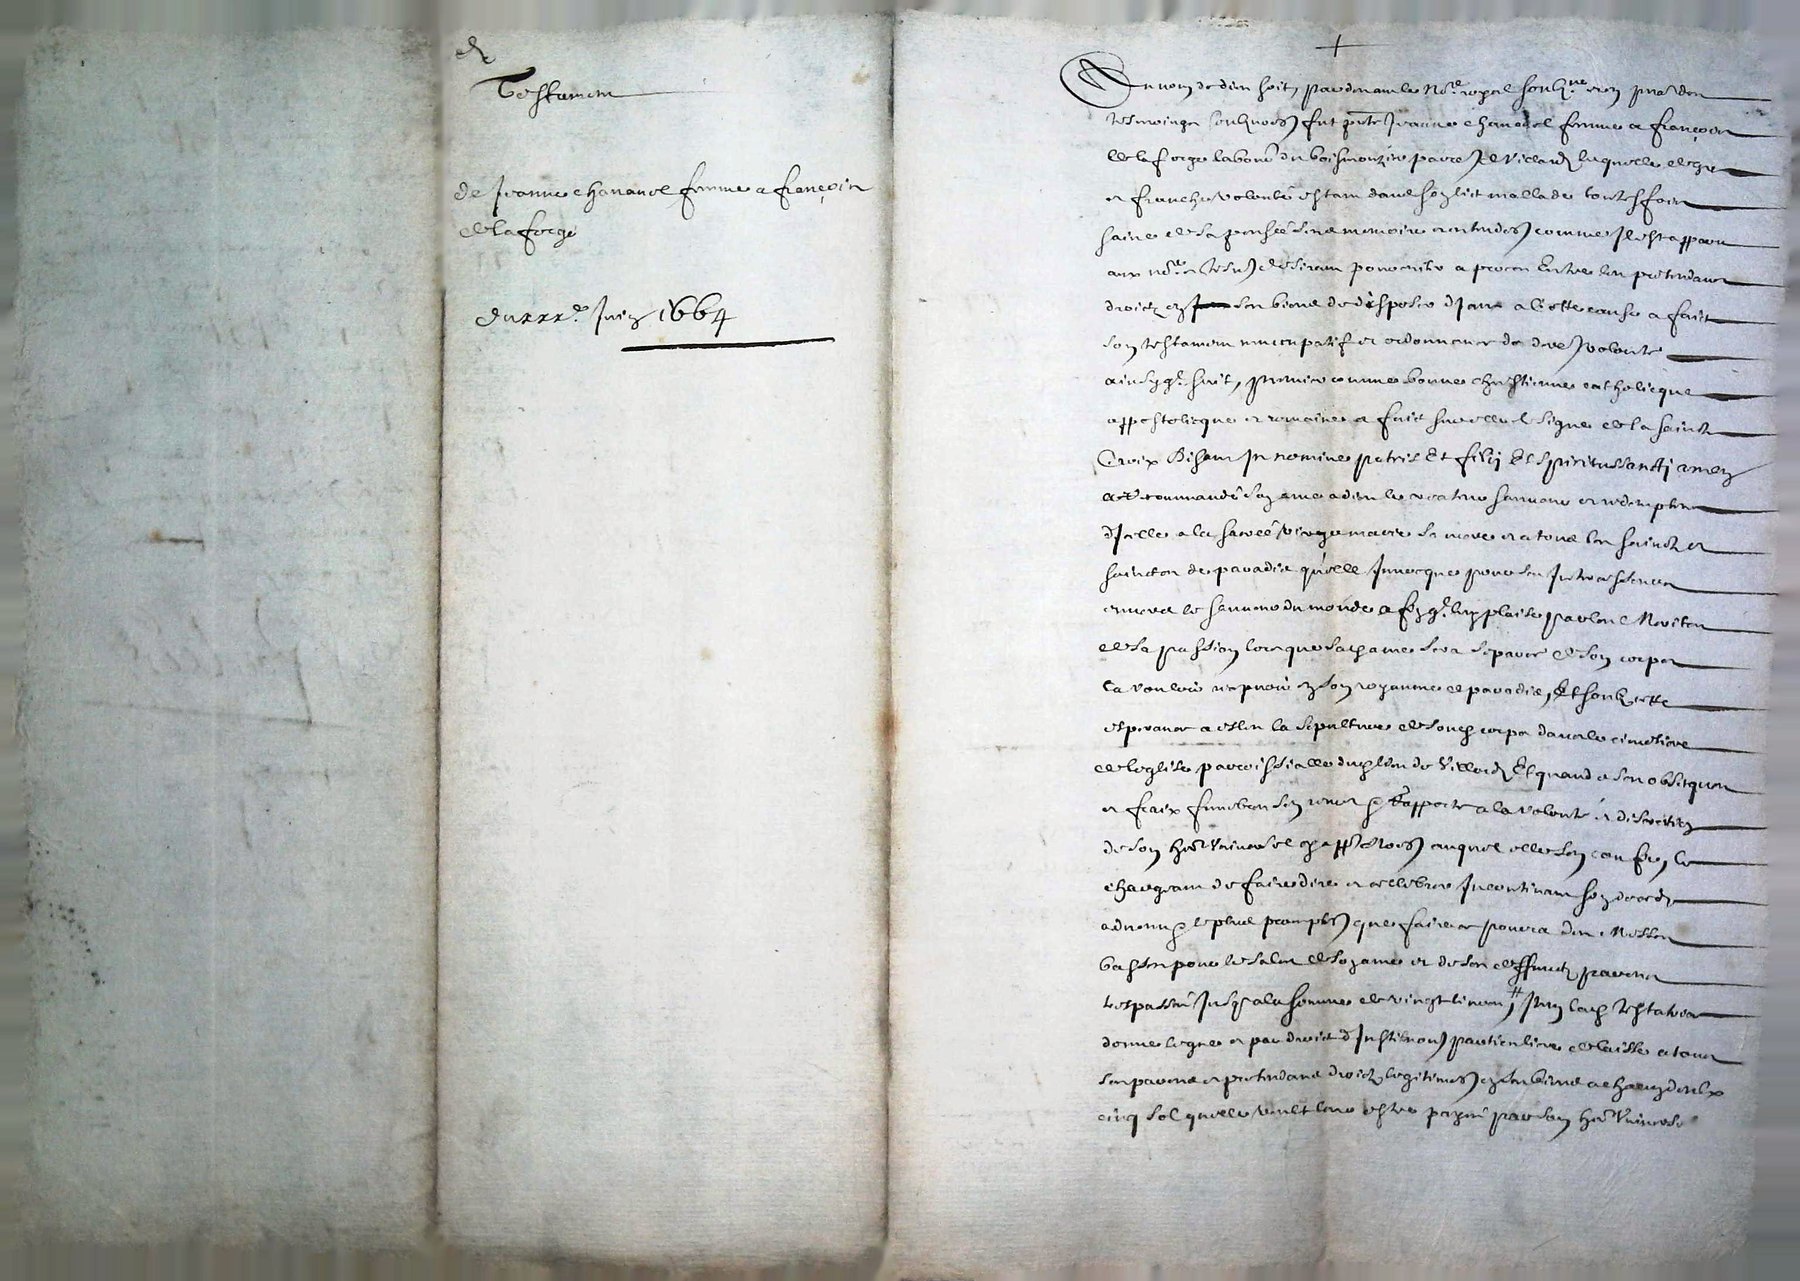 Testament
de Jeanne chavanol femme a françois
de laforge
du xxx.e Juin 1664
Au nom de dieu soit, pardevant le No.re royal soubz.né et en presence des
tesmoings soubznomes fut pnte Jeanne chavanol femme a françois
de laforge labour du bois monzin parroisse de Villards laquelle de gre
et franche volonté estant dans son lict mallade touteffois
saine de sa pensée bone memoire et entendement comme Il est apparu
aux no.re et tesm desirant pourvoir a proces Entre les pretendans
droictz en ses biens de disposer d'Iceux a Cette cause a faict
son testament nuncupatif et ordonnance de dre volonte
ainsy q. suit, premier comme bonne chrestienne catholicque
appostolicque et romaine a faict sur elle le signe de la saincte
Croix Disant In nomine patris Et filij Et spiritus sancti amen
a recommandé son ame a dieu le createur sauveur et redempteur
d'Icelle a la sacrée vierge marie sa mere et a tous les sainctz et
sainctes de paradis qu'elle Invocque pour ses Intercesseurs
envers le sauveur du monde a fin q. luy plaise par les Merites
de sa passion lorsque sad ame sera separée de son corps
la vouloir recepvoir en son royaume de paradis, Et soubz cette
esperance a esleu la sepulture de sond corps dans le cimetiere
de leglise parroissialle dud lieu de Villards Et quand a ses obseques
et fraix funebres sen remet et rapporte a la volonte et discretion
de son her Universel cy apps nomé auquel elle sen confie, le
chargeant de faire dire et cellebrer Incontinant son deceds
advenu et le plus promptement que faire ce pourra des Messes
basses pour le salut de son ame et de ses deffunctz parens
trespassés Jusq. a la somme de vingt livres, Item lad testatrice
donne legue et par droict d'Institution particuliere delaisse a tous
ses parens et pretendans droictz legitimes en ses biens a chacun deulx
cinq sol quelle veult leur estre payé par son her Universe